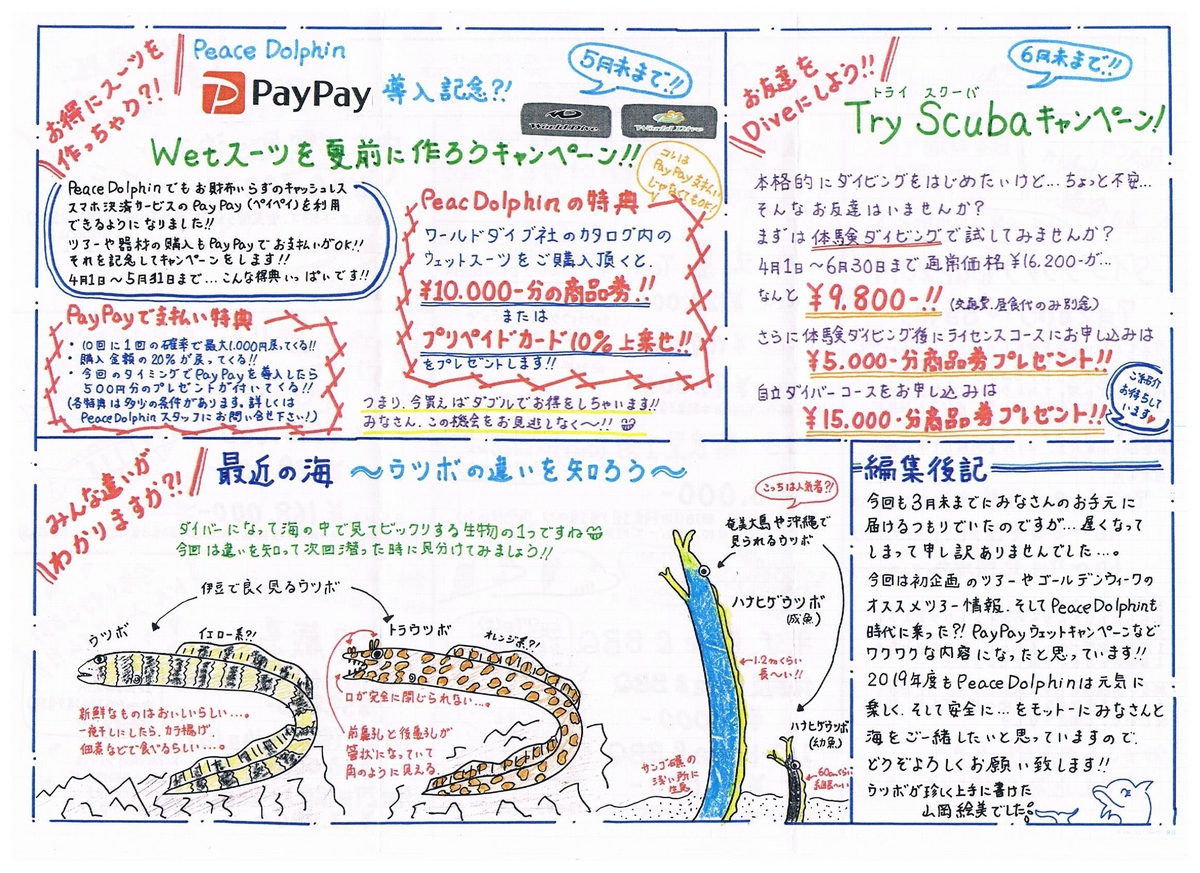 お得にスーツを
作っちゃう?!
Peace Dolphin
PayPay 導入記念?!
5月末まで!!
World Dive
Wetスーツを夏前に作ろうキャンペーン!!
コレは
PayPay支払い
じゃなくてもOK!
Peace Dolphinでもお財布いらずのキャッシュレス
スマホ決済サービスのPayPay(ペイペイ)を利用
できるようになりました!!
ツアーや器材の購入もPayPayでお支払いがOK!!
それを記念してキャンペーンをします!!
4月1日〜5月31日まで…こんな得典いっぱいです!!
PayPayで支払い特典
・10回に1回の確率で最大1.000円戻ってる!!
・購入金額の20%が戻ってくる!!
・今回のタイミングでPayPayを導入したら
500円分のプレゼントが付いてくる!!
(各特典は多少の条件があります。詳しくは
Peace Dolphinスタッフにお問い合せ下さい!)
Peac Dolphinの特典
ワールドダイブ社のカタログ内の
ウェットスーツをご購入頂くと、
¥10.000-分の商品券!!
または
プリペイドカード10%上乗せ!!
をプレゼントします!!
つまり、今買えばダブルでお得をしちゃいます!!
みなさん、この機会をお見逃しなく〜!!
お友達を
Diveにしよう!!
6月末まで!!
トライ スクーバ
Try Scubaキャンペーン!
本格的にダイビングをはじめたいけど…ちょっと不安…
そんなお友達はいませんか?
まずは体験ダイビングで試してみませんか?
4月1日〜6月30日まで通常価格¥16.200-が…
なんと ¥9.800-!! (交通費、昼食代のみ別途)
さらに体験ダイビング後にライセンスコースにお申し込みは
¥5.000-分商品券プレゼント!!
自立ダイバーコースをお申し込みは
¥15.000-分商品券プレゼント!!
ご紹介
お待ちして
います
みんな違いが
わかりますか?!
最近の海 〜ウツボの違いを知ろう〜
ダイバーになって海の中で見てビックリする生物の1つですね
今回は違いを知って次回潜った時に見分けてみましょう!!
伊豆で良く見るウツボ
ウツボ
イエロー系?!
新鮮なものはおいしいらしい…。
一夜干しにしたら、カラ揚げ、
佃煮などで食べるらしい…。
トラウツボ
オレンジ系?!
口が完全に閉じられない…。
前鼻孔と後鼻孔が
管状になっていて
角のように見える
こっちは人気者?!
奄美大島や沖縄で
見られるウツボ
ハナヒゲウツボ
(成魚)
1.2mくらい
長〜い!!
ハナヒゲウツボ
(幼魚)
サンゴ礁の
浅い所に
生息
60cmくらい
細長〜い
編集後記
今回も3月末までにみなさんのお手元に
届けるつもりでいたのですが…遅くなって
しまって申し訳ありませんでした…。
今回は初企画のツアーやゴールデンウィークの
オススメツアー情報、そしてPeace Dolphinも
時代に乗った?! PayPayウェットキャンペーンなど
ワクワクな内容になったと思っています!!
2019年度もPeace Dolphinは元気に
楽しく、そして安全に…をモットーにみなさんと
海をご一緒したいと思っていますので、
どうぞよろしくお願い致します!!
ウツボが珍しく上手に書けた
山岡絵美でした。